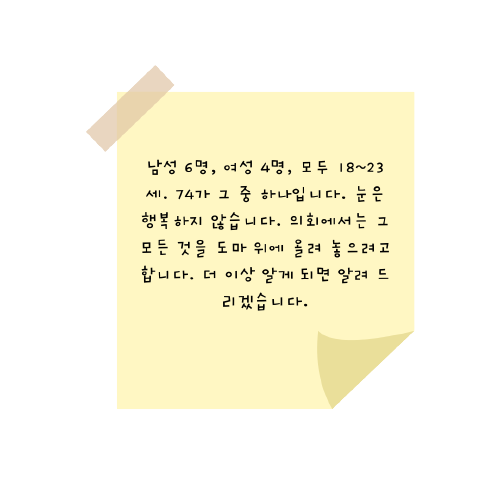 남성 6명, 여성 4명, 모두 18~23
세. 74가 그 중 하나입니다. 눈은
행복하지 않습니다. 의회에서는 그
모든 것을 도마 위에 올려 놓으려고
합니다. 더 이상 알게 되면 알려 드
리겠습니다.